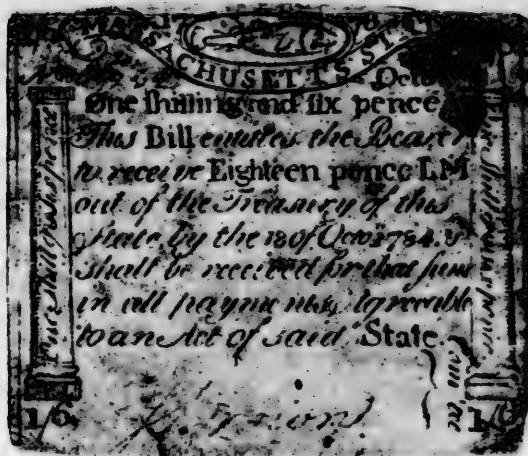 MASSACHUSETTS ST
Octo
One shilling and six pence
This Bill entitles the Bearer
to receive Eighteen pence LM
out of the Treasury of this
State by the 18 of Octo 1784. &
shall be received for that sum
in all payments, agreeable
to an Act of said State.
One Shill & Six pence
1/6
1/6